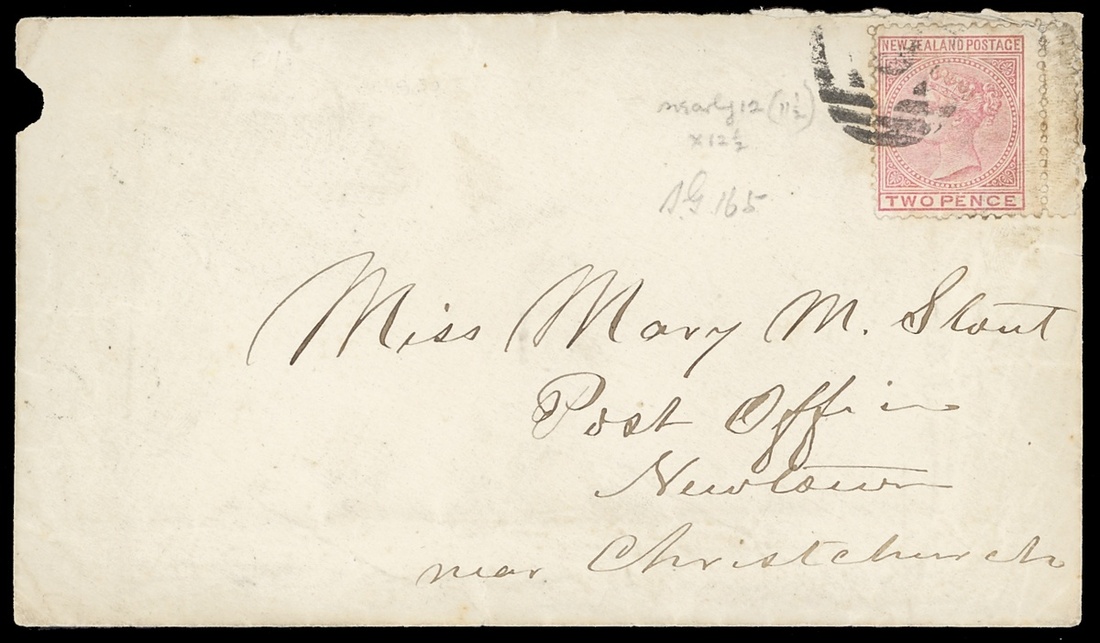 NEW ZEALAND POSTAGE
TWO PENCE
nearly 12 (11½)
x 12½
S.G. 165
Miss Mary M. Stout
Post Office
Newtown
near Christchurch